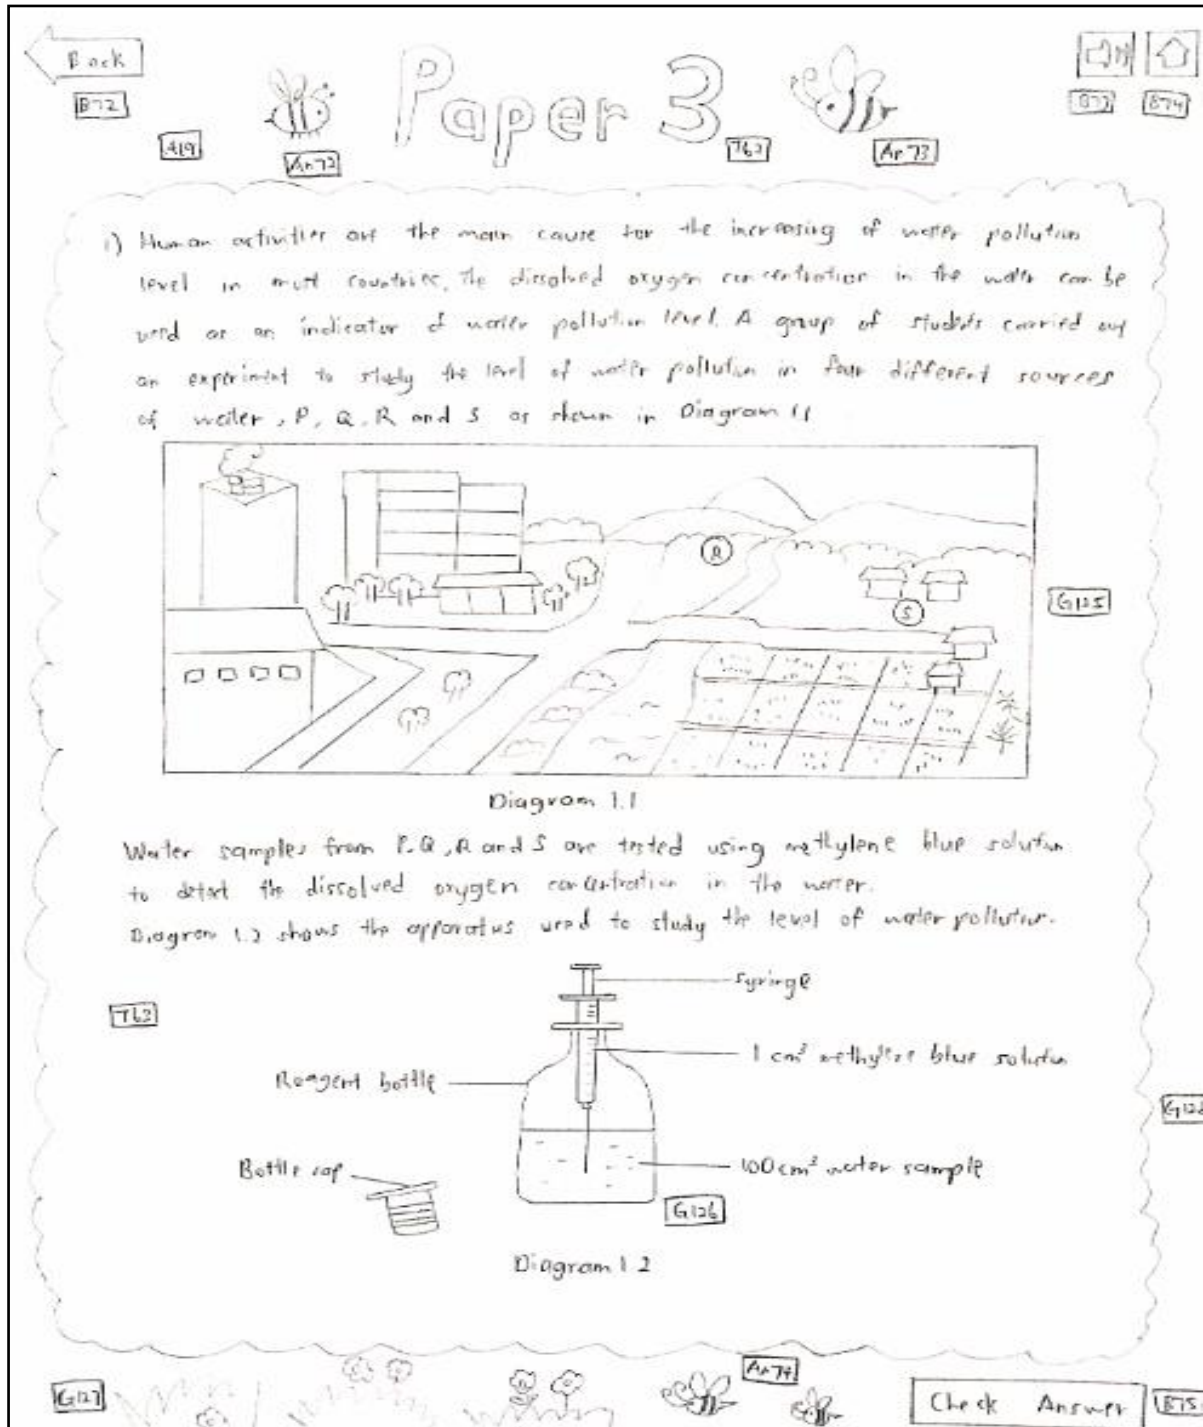 Back
B72
A19
An72
Paper 3
T62
An73
B73
B74
1) Human activities are the main cause for the increasing of water pollution
level in most countries. The dissolved oxygen concentration in the water can be
used as an indicator of water pollution level. A group of students carried out
an experiment to study the level of water pollution in four different sources
of water, P, Q, R and S as shown in Diagram 1.1
R
S
G125
Diagram 1.1
Water samples from P, Q, R and S are tested using methylene blue solution
to detect the dissolved oxygen concentration in the water.
Diagram 1.2 shows the apparatus used to study the level of water pollution.
T63
syringe
1 cm³ methylene blue solution
Reagent bottle
Bottle cap
100 cm³ water sample
G126
Diagram 1.2
G127
An74
Check Answer
B75